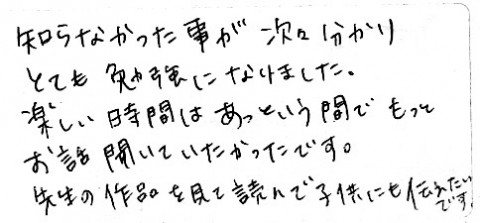 知らなかった事が次々分かり
とても勉強になりました。
楽しい時間はあっという間でもっと
お話聞いていたかったです。
先生の作品を見て読んで子供にも伝えたいです。